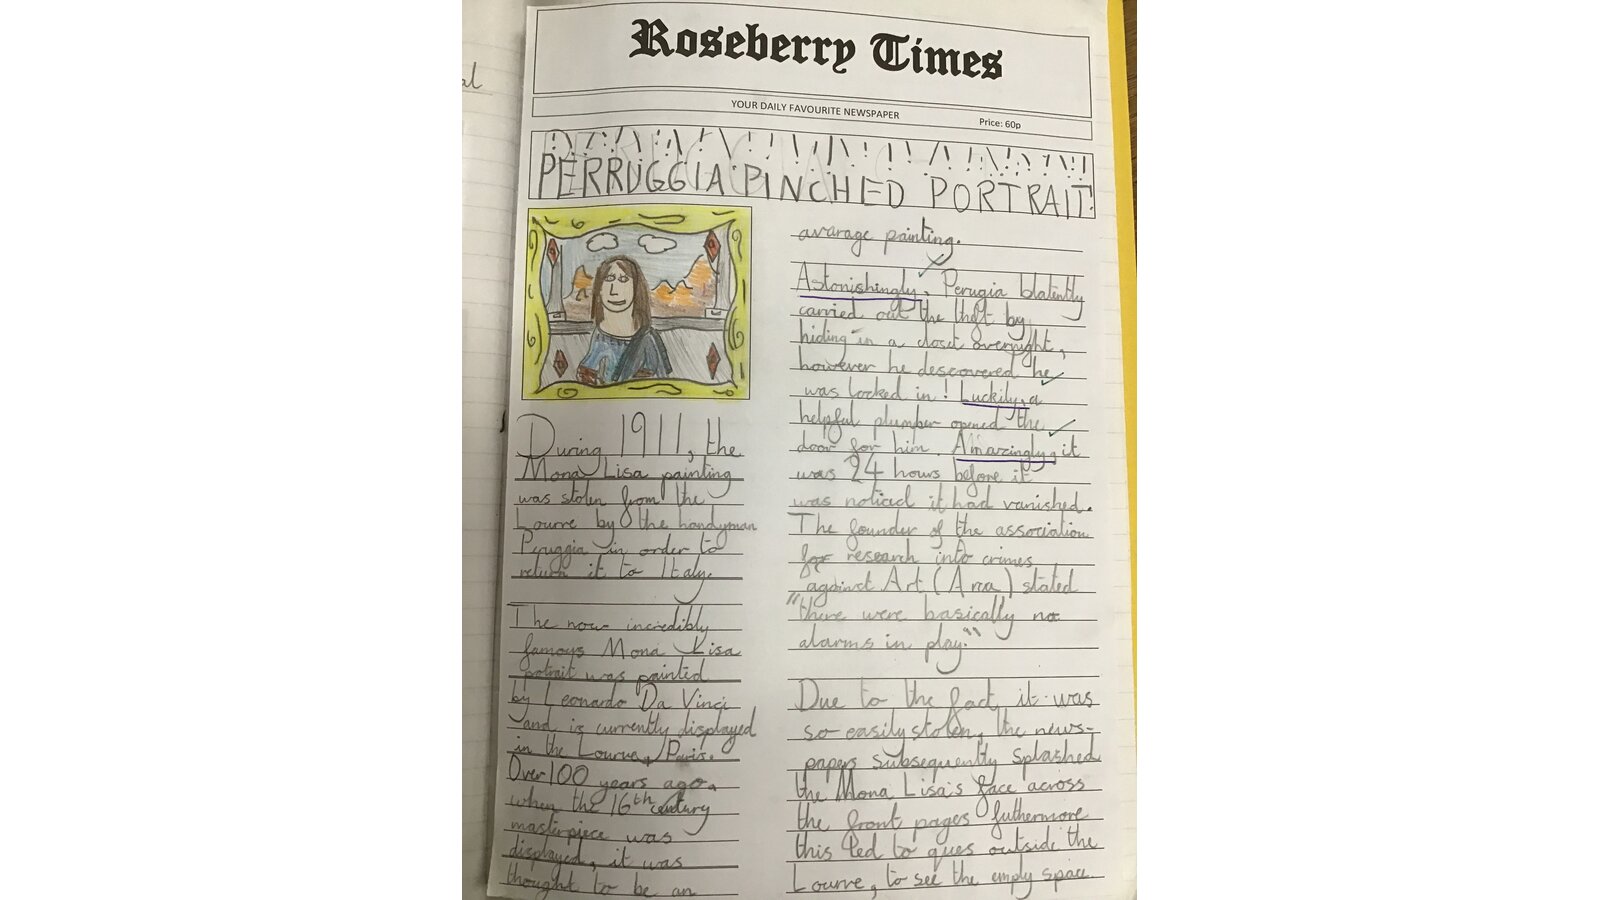 al
Roseberry Times
YOUR DAILY FAVOURITE NEWSPAPER
Price: 60p
PERRUGGIA PINCHED PORTRAIT!
During 1911, the
Mona Lisa painting
was stolen from the
Lourre by the handyman
Peruggia in order to
return it to Italy.
The now incredibly
famous Mona Lisa
potrait was painted
by Leonardo Da Vinci
and is currently displayed
in the Lourve, Paris.
Over 100 years ago,
when the 16th century
masterpiece was
displayed, it was
thought to be an
avarage painting.
Astonishingly, Perugia blatently
carried out the theft by
hiding in a closet overnight,
however he descovered he
was locked in! Luckily, a
helpful plumber opened the
door for him. Amazingly, it
was 24 hours before it
was noticed it had vanished.
The founder of the association
for research into crimes
against Art (Arca) stated
"there were basically no
alarms in play"
Due to the fact it was
so easily stolen, the news-
papers subsequently splashed
the Mona Lisa's face across
the front pages futhermore
this led to ques outside the
Lourve, to see the empty space.